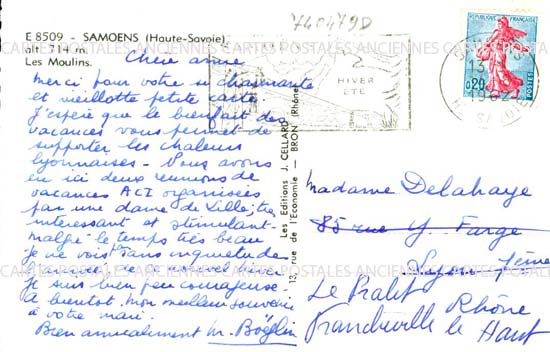 E 8509 - SAMOENS (Haute-Savoie)
alt. 714 m.
Les Moulins.
740479D
Chère amie
Merci pour votre si charmante
et vieillotte petite carte
J'espère que le bienfait des
vacances vous permet de
supporter les chaleurs
lyonnaises - Nous avons
eu ici deux réunions de
vacances ACI organisées
par une dame de Lille, très
intéressant et stimulant -
malgré le temps très beau
je ne vois sans inquiétude
nouvel hiver
Je suis bien peu courageuse.
A bientôt. Mon meilleur souvenir
à votre mari.
Bien amicalement M. Böglin
Les Editions J. CELLARD
13, rue de l'Economie - BRON (Rhône)
HIVER
ETE
REPUBLIQUE FRANCAISE
0,20
POSTES
1962
Madame Delahaye
85 rue Y. Farge
Lyon 7ème
Le Pralet Rhône
Francheville le Haut
CARTES POSTALES ANCIENNES CARTES POSTALES ANCIENNES